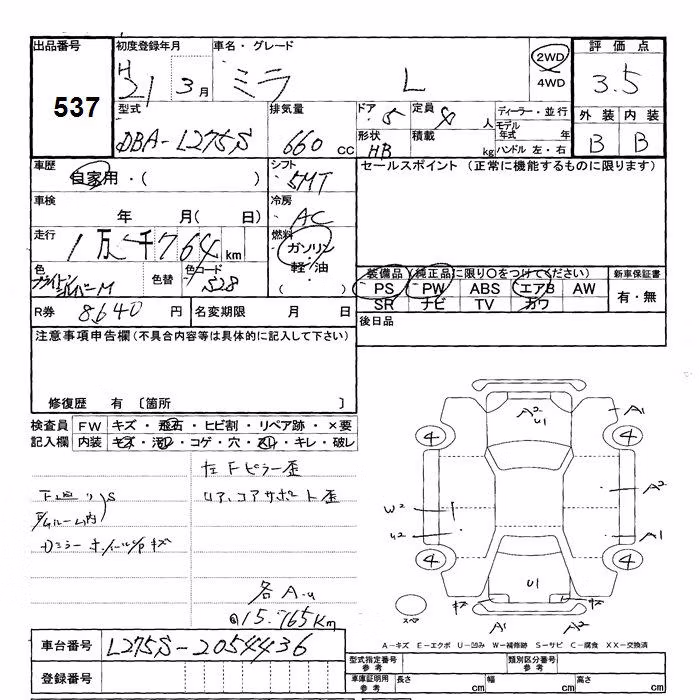 出品番号
537
初度登録年月
H 21 3月
車名・グレード
ミラ L
2WD
4WD
評価点
3.5
外装 内装
B B
型式
DBA-L275S
排気量
660 cc
ドア 5
定員 4 人
形状 HB
積載 kg
ディーラー・並行
モデル年式 年
ハンドル 左・右
車歴
自家用・( )
シフト
5MT
セールスポイント (正常に機能するものに限ります)
車検
年 月( 日)
冷房
AC
走行
1万 千764 km
燃料
ガソリン
軽油
( )
色
色替
色コード
S28
装備品 (純正品に限り〇をつけてください)
PS PW ABS エアB AW
SR ナビ TV カワ
新車保証書
有・無
R券 8640 円
名変期限 月 日
後日品
注意事項申告欄 (不具合内容等は具体的に記入して下さい)
修復歴 有 〔箇所 〕
検査員
記入欄
FW キズ・飛石・ヒビ割・リペア跡・×要
内装 キズ・汚レ・コゲ・穴・スレ・キレ・破レ
左Fピラー歪
リア、コアサポート歪
Dミラー ホイルC/P キズ
各A.U
15.765Km
A2
U1
A1
4
4
W2
A2
U2
A1
4
4
U1
キズ
キズ
スペア
A1
A2
A-キズ E-エクボ U-凹み W-補修跡 S-サビ C-腐食 XX-交換済
車台番号 L275S-2054436
登録番号
型式指定番号
参考
類別区分番号
参考
車庫証明用
参考
長さ cm
幅 cm
高さ cm